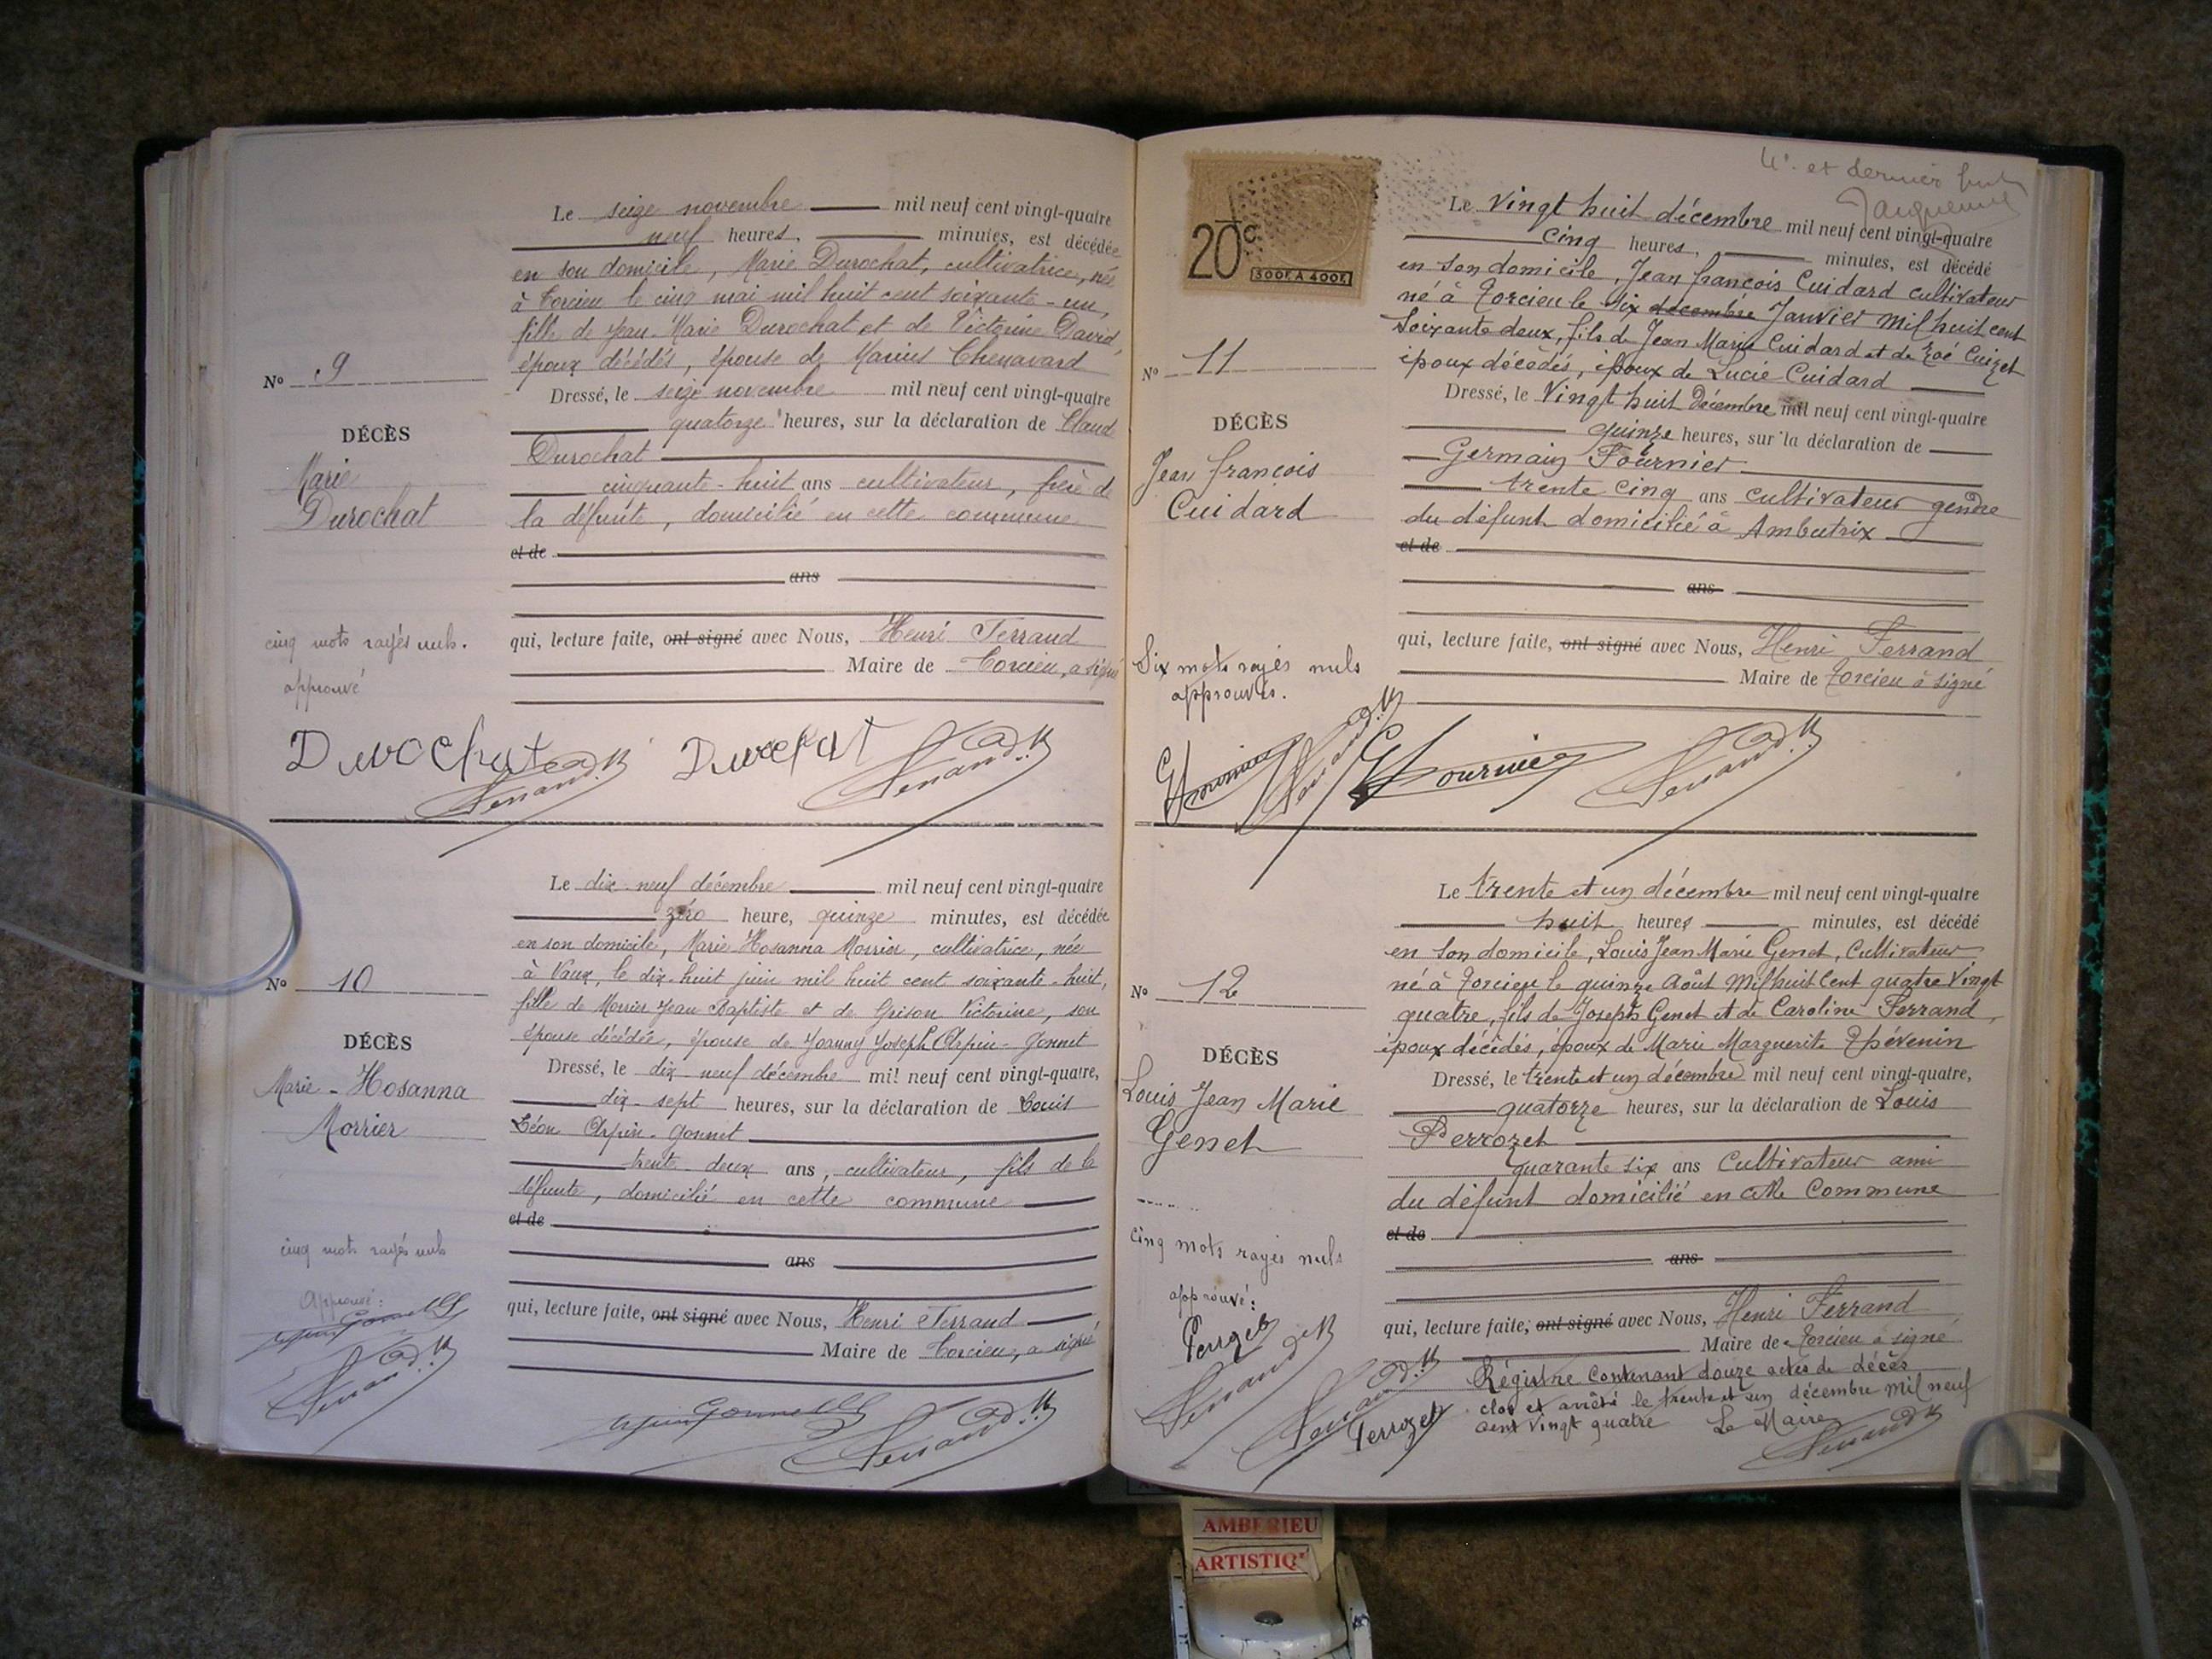 Le seize novembre mil neuf cent vingt-quatre
neuf heures, minutes, est décédée
en son domicile, Marie Durochat, cultivatrice, née
à Torcieu le cinq mai mil huit cent soixante-un,
fille de Jean-Marie Durochat et de Victorine David,
époux décédés, épouse de Marius Chenavard
Nº 9
Dressé, le seize novembre mil neuf cent vingt-quatre
quatorze heures, sur la déclaration de Claude
DÉCÈS
Marie
Durochat
Durochat
cinquante-huit ans cultivateur, frère de
la défunte, domicilié en cette commune
et de
ans
cinq mots rayés nuls.
approuvé
qui, lecture faite, ont signé avec Nous, Henri Ferrand
Maire de Torcieu, a signé
Durochat Durochat
Ferrand Ferrand
Le dix-neuf décembre mil neuf cent vingt-quatre
zéro heure, quinze minutes, est décédée
en son domicile, Marie Hosanna Morrier, cultivatrice, née
à Vaux, le dix-huit juin mil huit cent soixante-huit,
fille de Morrier Jean Baptiste et de Grison Victorine, son
épouse décédée, épouse de Joanny Joseph Arpin-Gonnet
Nº 10
DÉCÈS
Marie-Hosanna
Morrier
Dressé, le dix-neuf décembre mil neuf cent vingt-quatre,
dix-sept heures, sur la déclaration de Louis
Léon Arpin-Gonnet
trente-deux ans, cultivateur, fils de la
défunte, domicilié en cette commune
et de
ans
cinq mots rayés nuls
Approuvé:
qui, lecture faite, ont signé avec Nous, Henri Ferrand
Maire de Torcieu, a signé
Ferrand
Ferrand
4e et dernier
20c
300F. A 400F.
Le Vingt huit décembre mil neuf cent vingt-quatre
cinq heures, minutes, est décédé
en son domicile, Jean françois Cuidard cultivateur
né à Torcieu le Six décembre Janvier Mil huit cent
Soixante deux, fils de Jean Marie Cuidard et de Zoé Cuizet
époux décédés, époux de Lucie Cuidard
Nº 11
DÉCÈS
Jean françois
Cuidard
Dressé, le Vingt huit Décembre mil neuf cent vingt-quatre
quinze heures, sur la déclaration de
Germain Fournier
trente cinq ans cultivateur gendre
du défunt domicilié à Ambutrix
et de
ans
Six mots rayés nuls
approuvés.
qui, lecture faite, ont signé avec Nous, Henri Ferrand
Maire de Torcieu à signé
G Fournier Ferrand G Fournier Ferrand
Le trente et un décembre mil neuf cent vingt-quatre
huit heures minutes, est décédé
en Son domicile, Louis Jean Marie Genet, Cultivateur
né à Torcieu le quinze Août Mil huit Cent quatre Vingt
quatre, fils de Joseph Genet et de Caroline Ferrand,
époux décédés, époux de Marie Marguerite Thévenin
Nº 12
DÉCÈS
Louis Jean Marie
Genet
Dressé, le trente et un décembre mil neuf cent vingt-quatre,
quatorze heures, sur la déclaration de Louis
Perrozet
quarante six ans Cultivateur ami
du défunt domicilié en cette Commune
et de
ans
Cinq mots rayés nuls
approuvé:
Perrozet
Ferrand
qui, lecture faite, ont signé avec Nous, Henri Ferrand
Maire de Torcieu a signé
Régistre Contenant douze actes de décès
clos et arrêté le trente et un décembre Mil neuf
cent vingt quatre Le Maire
Ferrand Perrozet Ferrand
AMBERIEU
ARTISTIQ